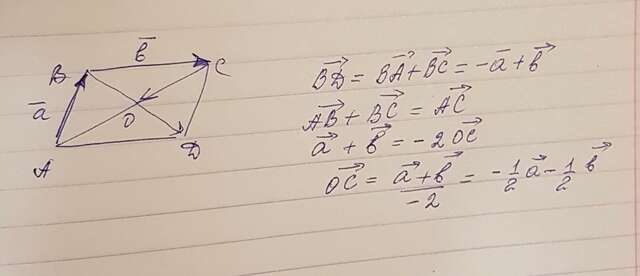 b̅
B C
a̅
O
A D
B͞D⃗ = B͞A⃗ + B͞C⃗ = -a⃗ + b⃗
A͞B⃗ + B͞C⃗ = A͞C⃗
a⃗ + b⃗ = -2 O͞C⃗
O͞C⃗ = (a⃗ + b⃗)/-2 = -1/2 a⃗ - 1/2 b⃗